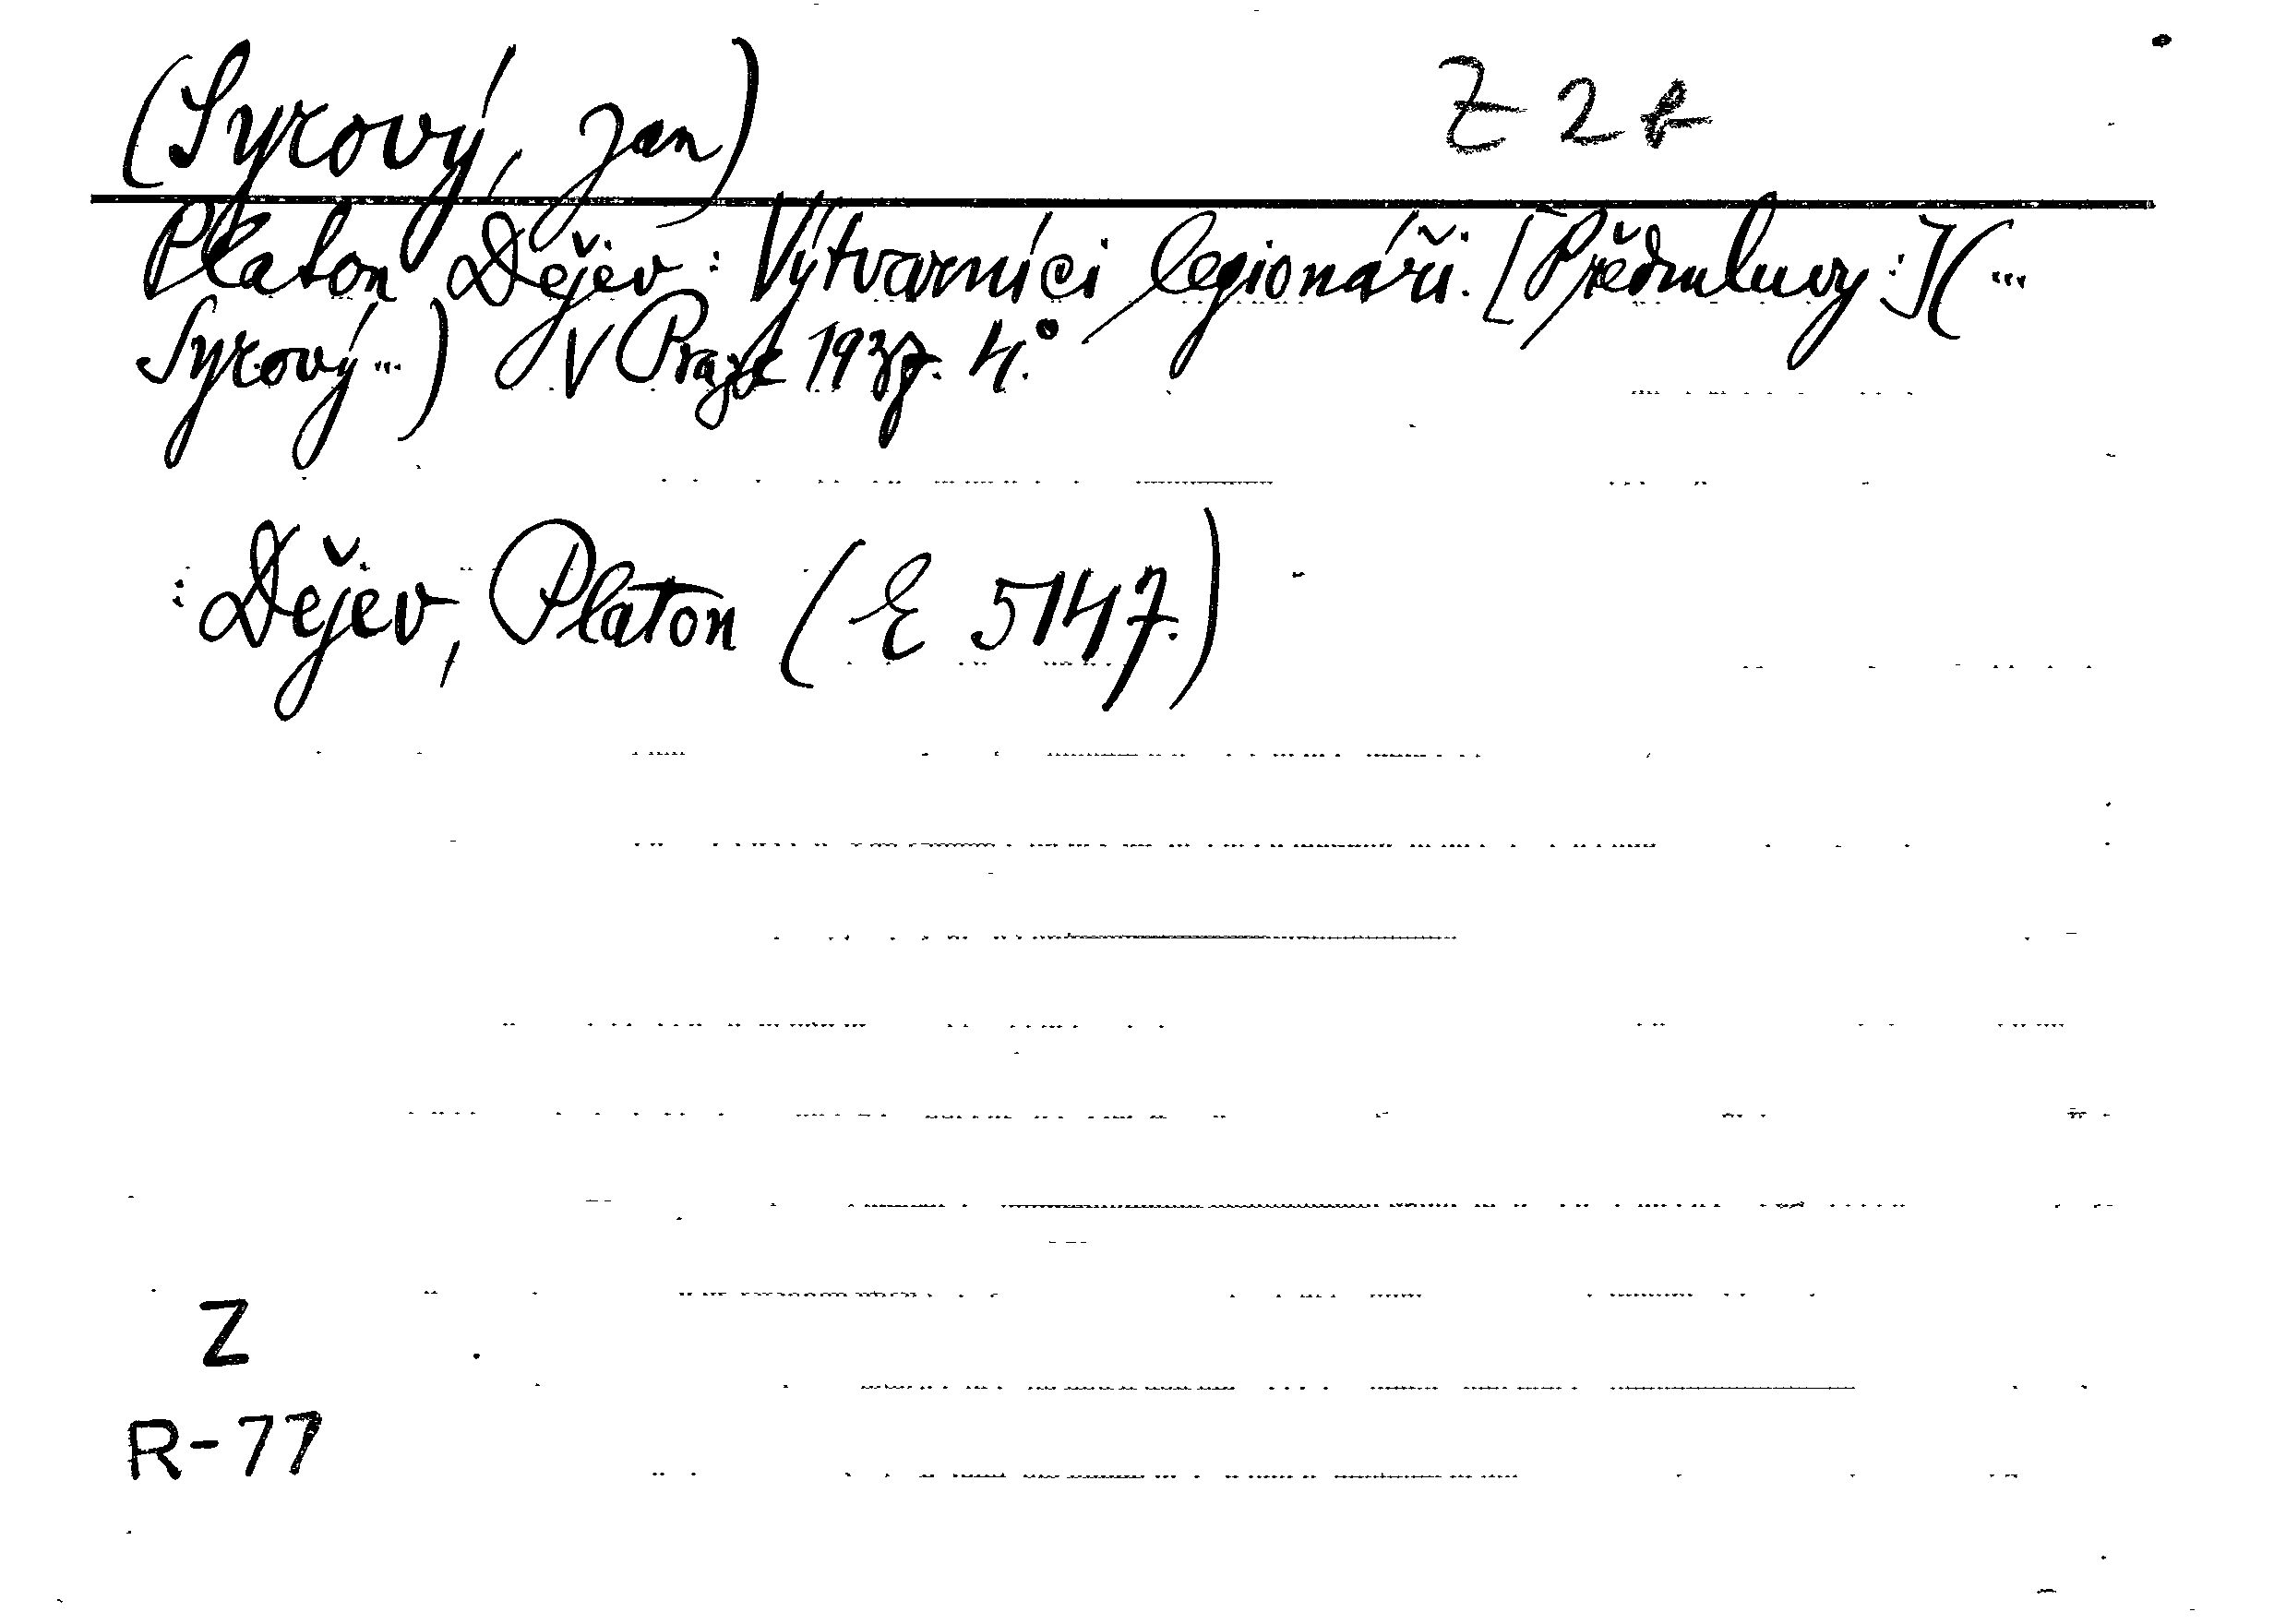 (Syrový, Jan) Z 2
Platon Dějev: Výtvarníci legionáři. [Předmluvy:] (...
Syrový...) V Praze 1937. 4.°
: Dějev, Platon (E 5147.)
Z
R-77